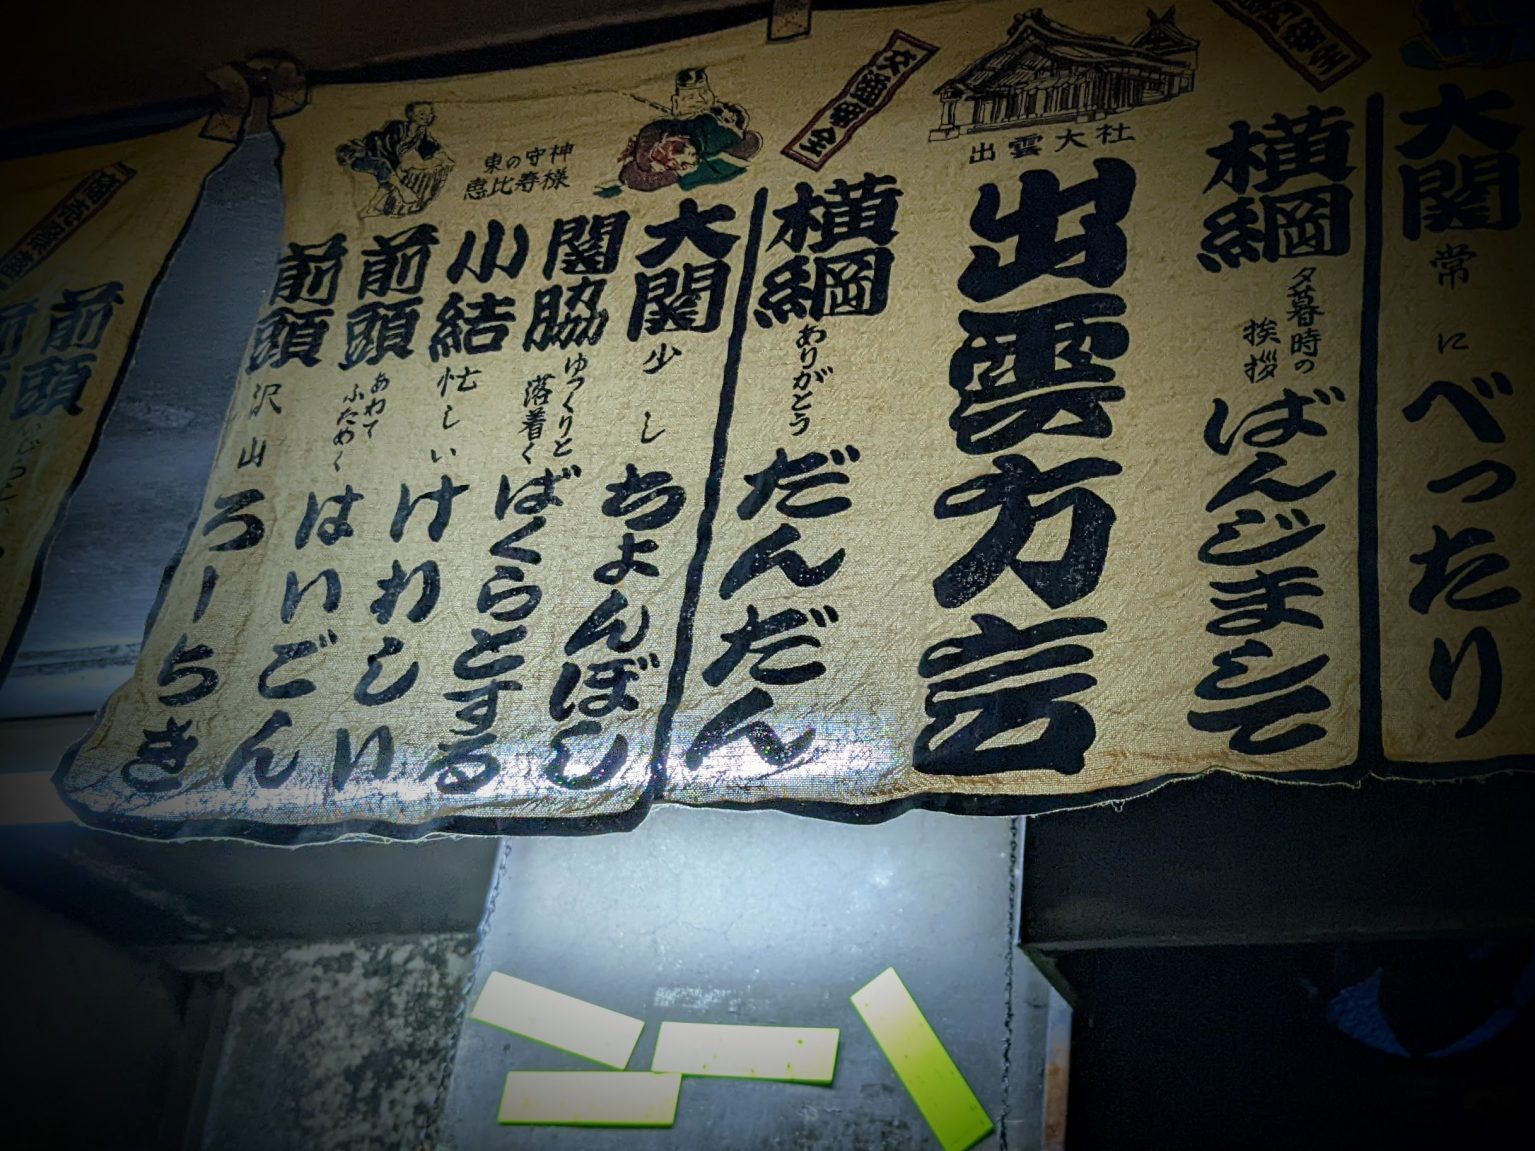 大関 常に べったり
横綱 夕暮時の挨拶 ばんじまして
出雲大社
出雲方言
横綱 ありがとう だんだん
大関 少し ちょんぼし
関脇 ゆっくりと落着く ばくらとする
小結 忙しい けわしい
前頭 あわてふためく はいごん
前頭 沢山 ろーちき
東の守神
恵比寿様
前頭
前頭